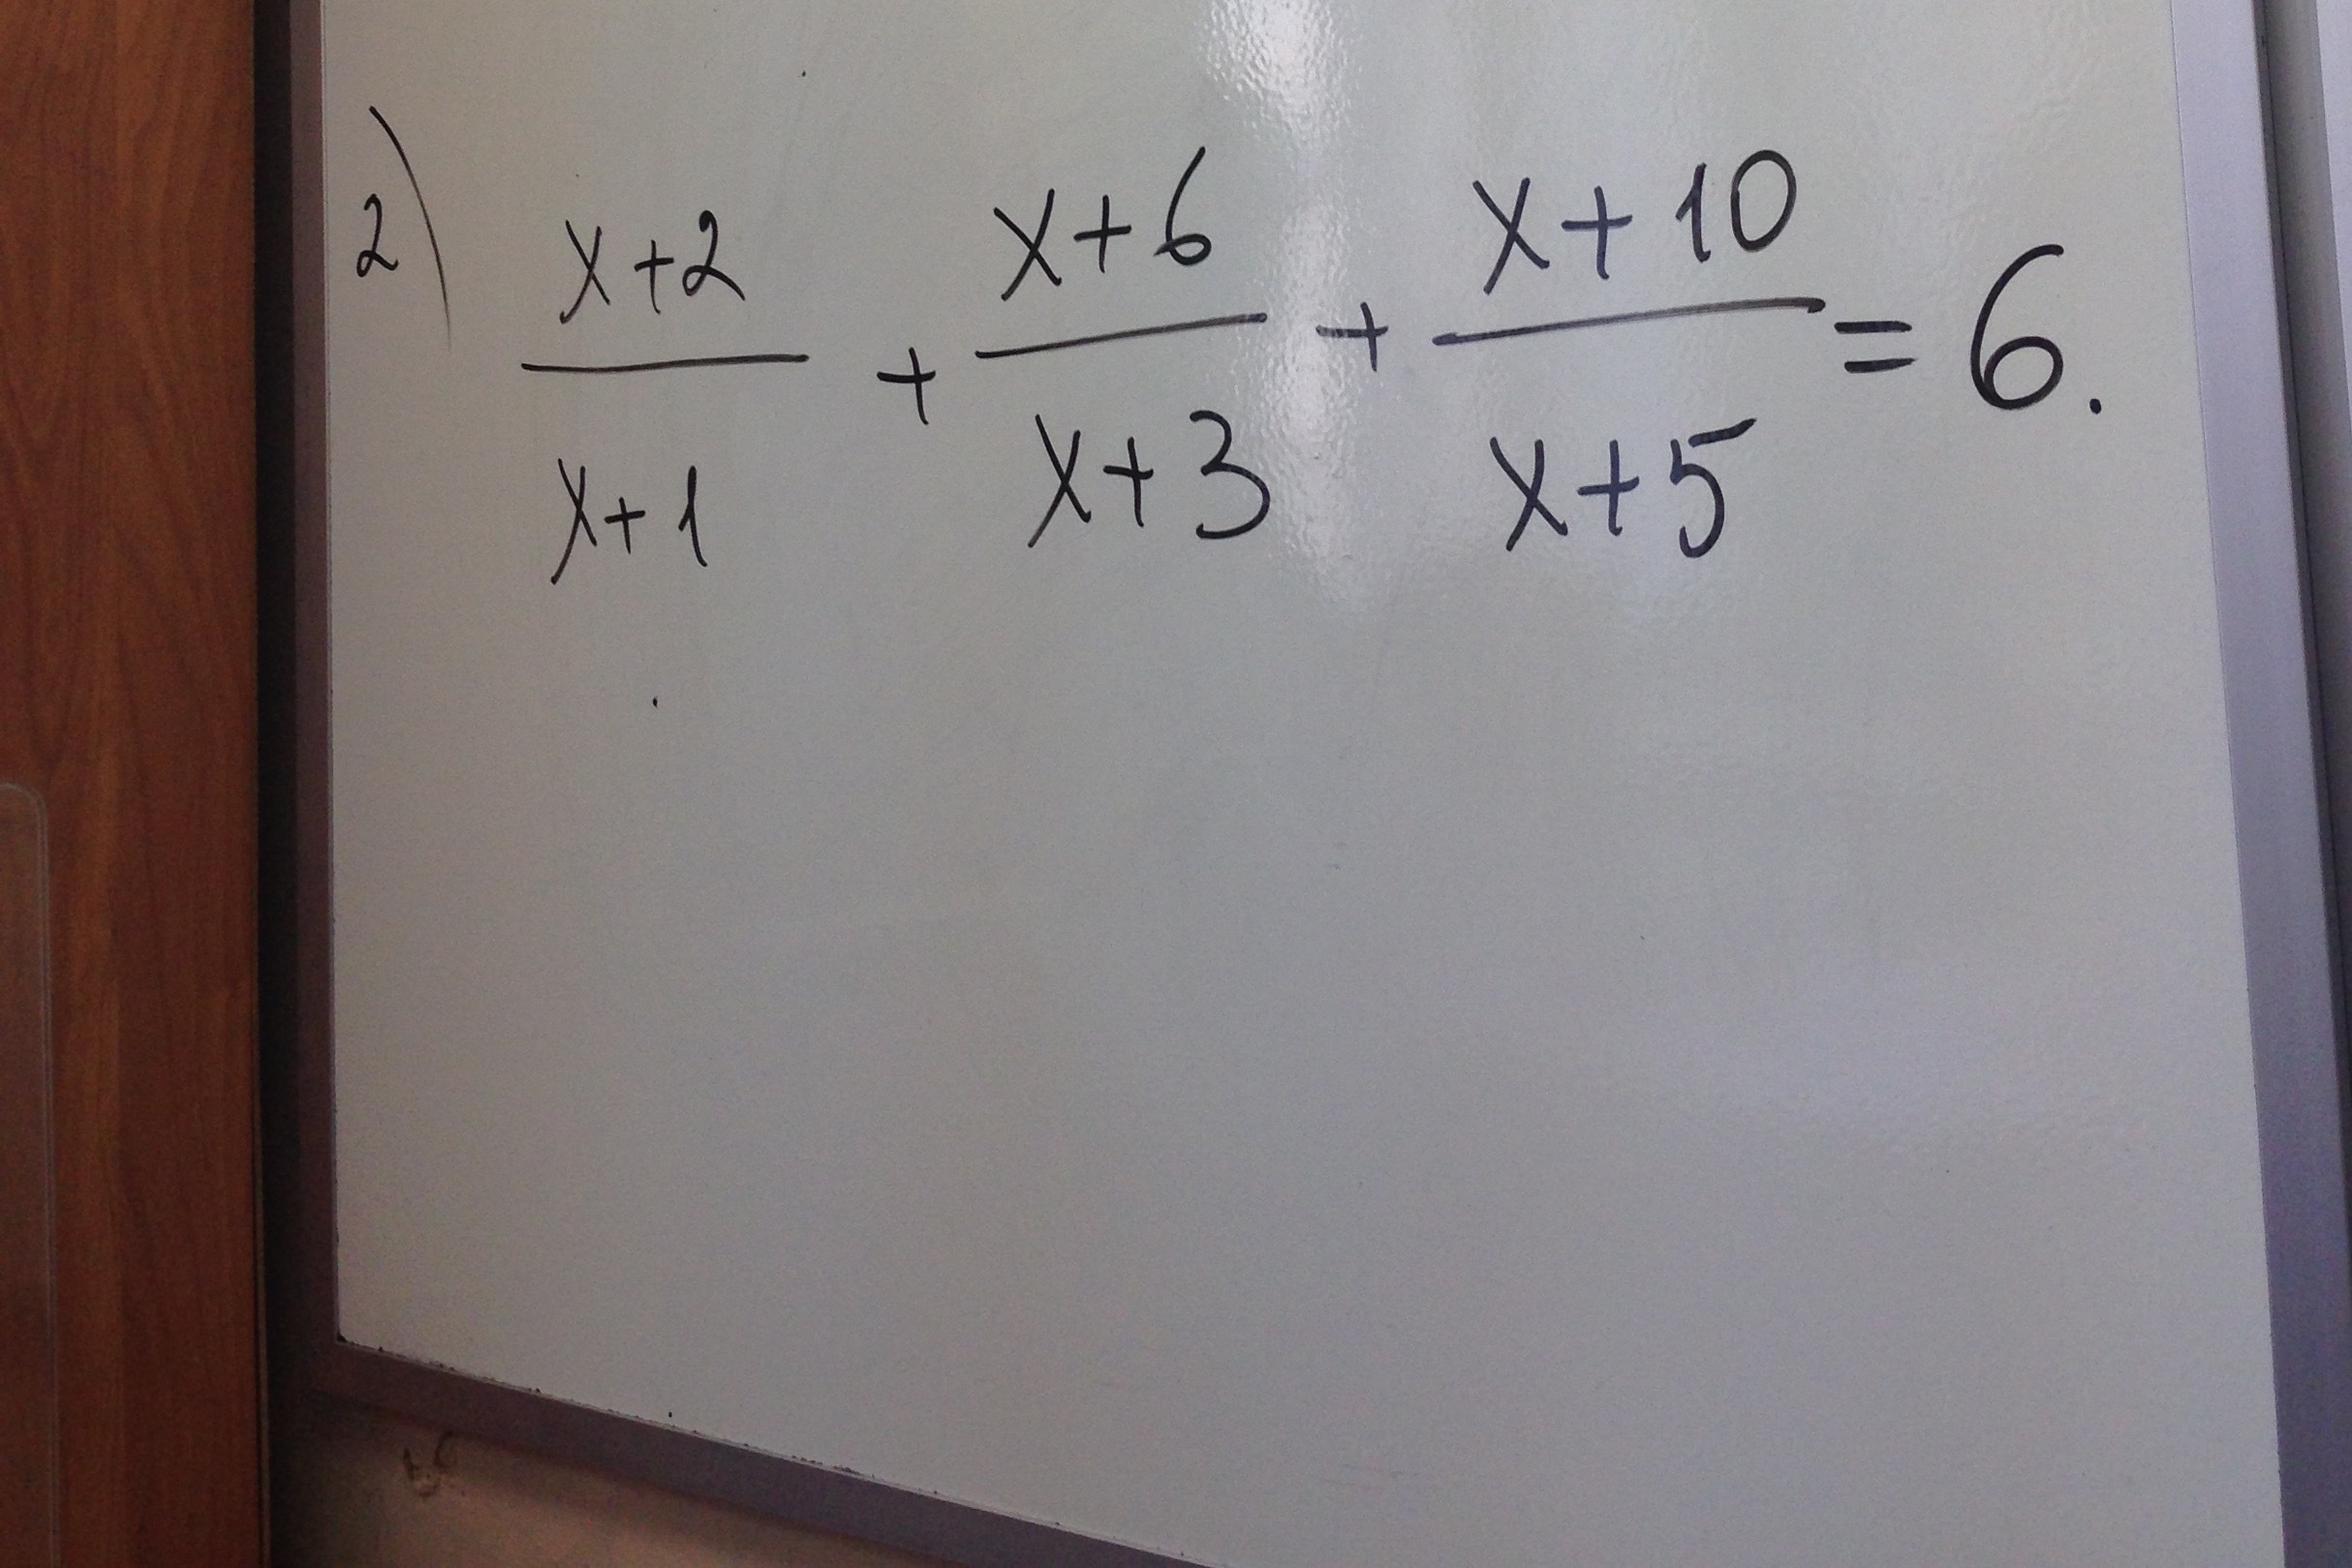 2) (x+2)/(x+1) + (x+6)/(x+3) + (x+10)/(x+5) = 6.